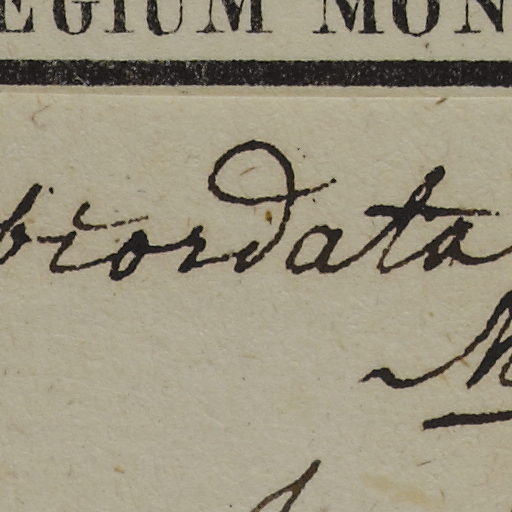 EGIUM MON
bcordata
M